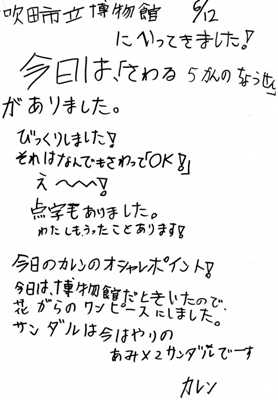 吹田市立博物館 6/12
にいってきました!
今日は、「さわる 5かんの
がありました。
びっくりしました!
それはなんでもさわって「OK!」
え〜〜!
点字もありました。
わたしもうったことあります!
今日のカレンのオシャレポイント!
今日は、博物館だときいたので、
花がらのワンピースにしました。
サンダルは今はやりの
あみ×2サンダルでです
カレン